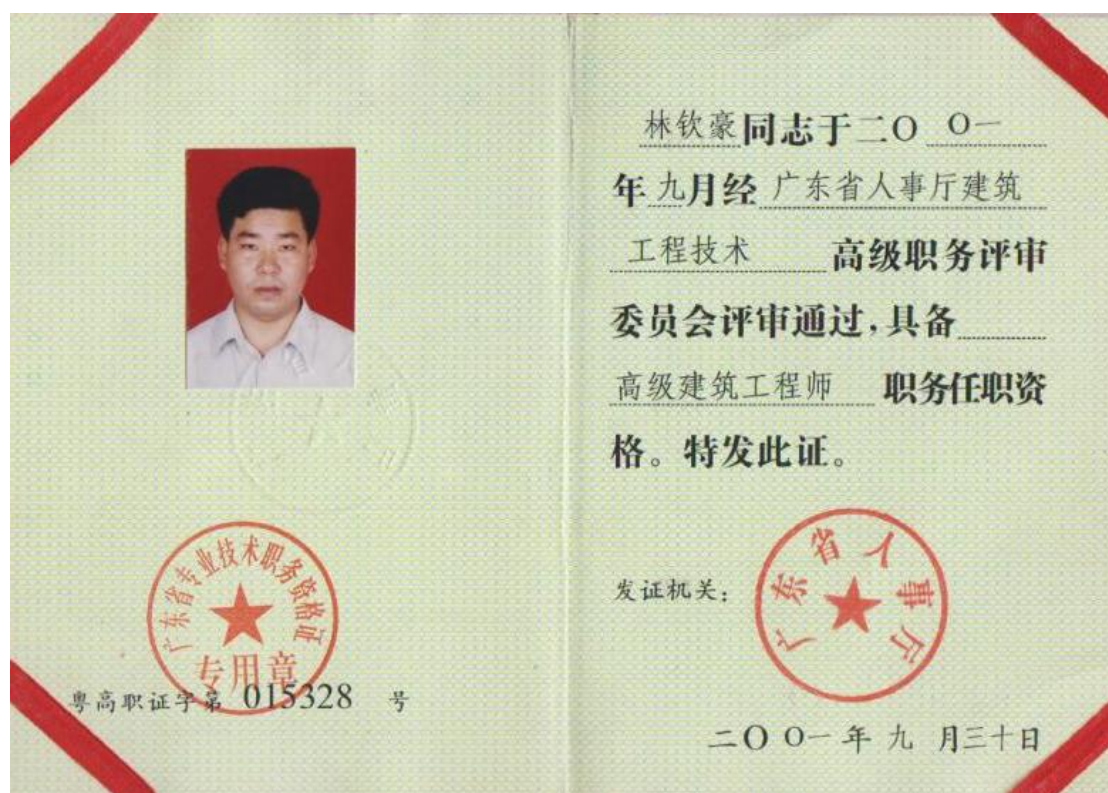 广东省专业技术职务资格证
专用章
粤高职证字第 015328 号
林钦豪同志于二〇〇一
年九月经广东省人事厅建筑
工程技术 高级职务评审
委员会评审通过,具备
高级建筑工程师 职务任职资
格。特发此证。
发证机关:
广东省人事厅
二〇〇一年九月三十日